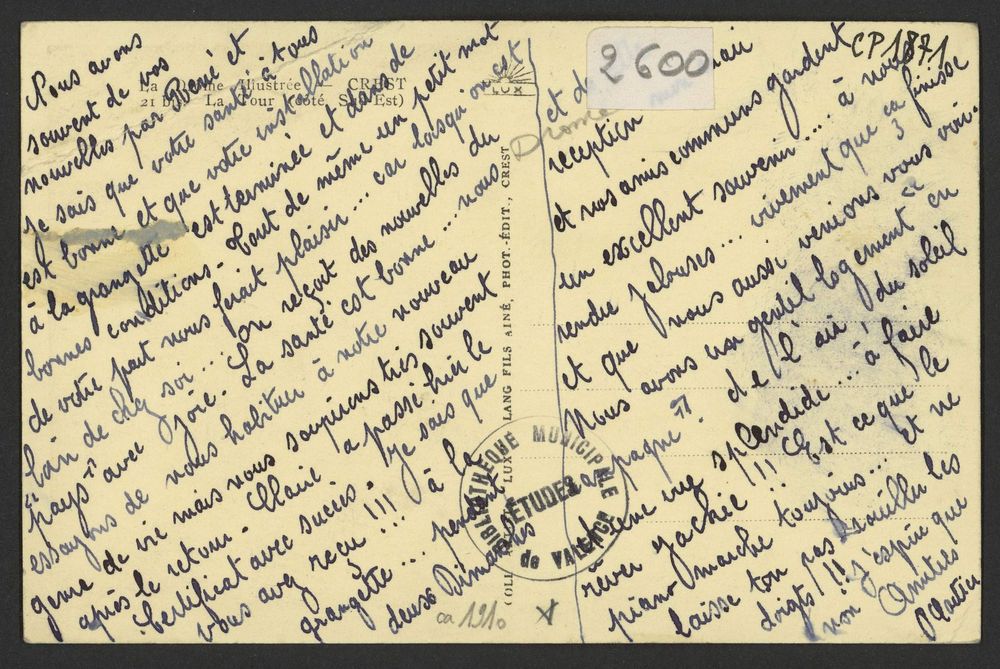 CP 1871
2600
Drôme
La Drôme Illustrée - CREST
21 bis La Tour (côté Sud-Est)
LUX
LANG FILS AINÉ, PHOT.-ÉDIT., CREST
BIBLIOTHÈQUE MUNICIPALE
D'ÉTUDES
de VALENCE
ca 1910
Nous avons
souvent de vos
nouvelles par René et
je sais que votre santé à tous
est bonne et que votre installation
à la grangette est terminée et dans de
bonnes conditions - Tout de même un petit mot
de votre part nous ferait plaisir... car lorsqu'on est
loin de chez soi... on reçoit des nouvelles du
"pays" avec joie. La santé est bonne... nous
essayons de nous habituer à notre nouveau
genre de vie mais nous soupirons très souvent
après le retour - Claire a passé hier le
Certificat avec succès. Je sais que
vous avez reçu !!! à la
grangette... pendant
deux Dimanches
et de
réception
et nos amis communs gardent
un excellent souvenir.... à nous
rendre jalouses... vivement que ça finisse
et que nous aussi venions vous voir -
Nous avons un gentil logement "en
pagne". de l'air du soleil
une splendide... à faire
rêver Zachée !!! Est ce que le
piano marche toujours... et ne
laisse ton pas rouiller les
doigts !! j'espère que
non Amitiés